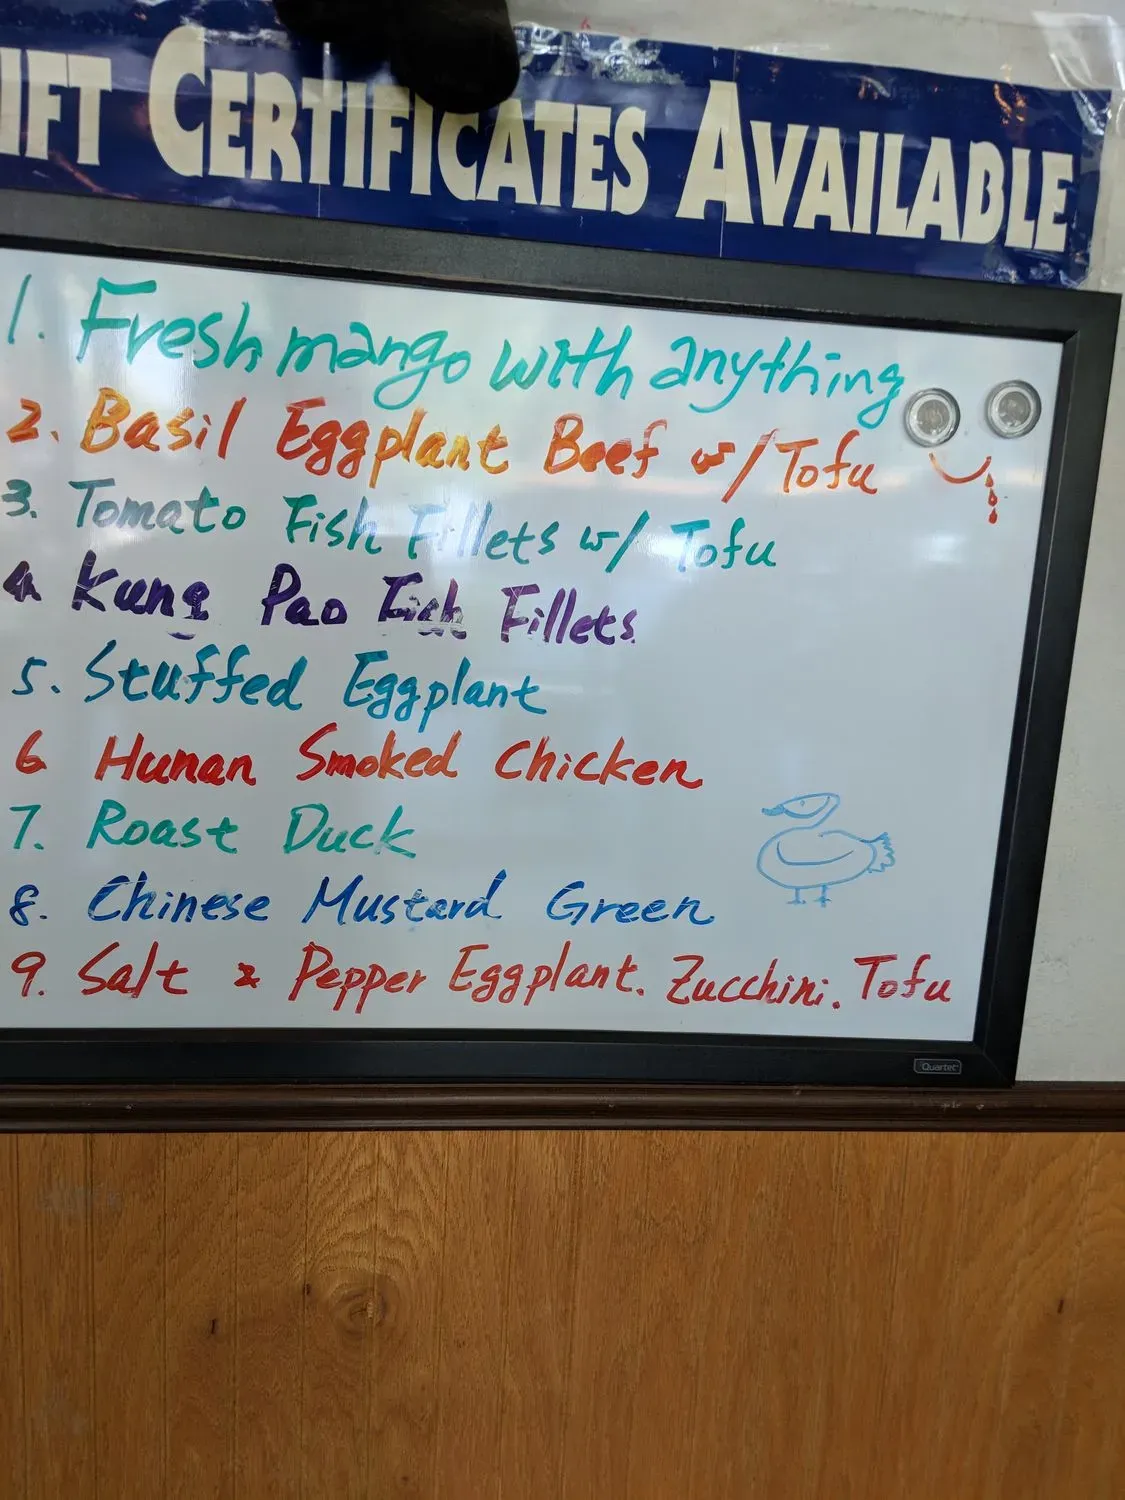 IFT CERTIFICATES AVAILABLE
1. Fresh mango with anything
2. Basil Eggplant Beef w/ Tofu
3. Tomato Fish Fillets w/ Tofu
4 Kung Pao Fish Fillets
5. Stuffed Eggplant
6 Hunan Smoked Chicken
7. Roast Duck
8. Chinese Mustard Green
9. Salt & Pepper Eggplant. Zucchini. Tofu
Quartet